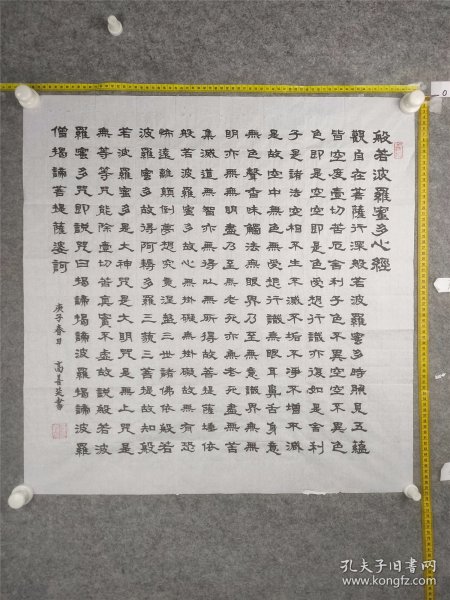 般若波羅蜜多心經
觀自在菩薩行深般若波羅蜜多時照見五蘊
皆空度壹切苦厄舍利子色不異空空不異色
色即是空空即是色受想行識亦復如是舍利
子是諸法空相不生不滅不垢不淨不增不減
是故空中無色無受想行識無眼耳鼻舌身意
無色聲香味觸法無眼界乃至無意識界無無
明亦無無明盡乃至無老死亦無老死盡無苦
集滅道無智亦無得以無所得故菩提薩埵依
般若波羅蜜多故心無掛礙無掛礙故無有恐
怖遠離顛倒夢想究竟涅盤三世諸佛依般若
波羅蜜多故得阿耨多羅三藐三菩提故知般
若波羅蜜多是大神咒是大明咒是無上咒是
無等等咒能除壹切苦真實不虛故說般若波
羅蜜多咒即說咒曰揭諦揭諦波羅揭諦波羅
僧揭諦菩提薩婆訶
庚子春日 高善書
孔夫子旧书网
www.kongfz.com